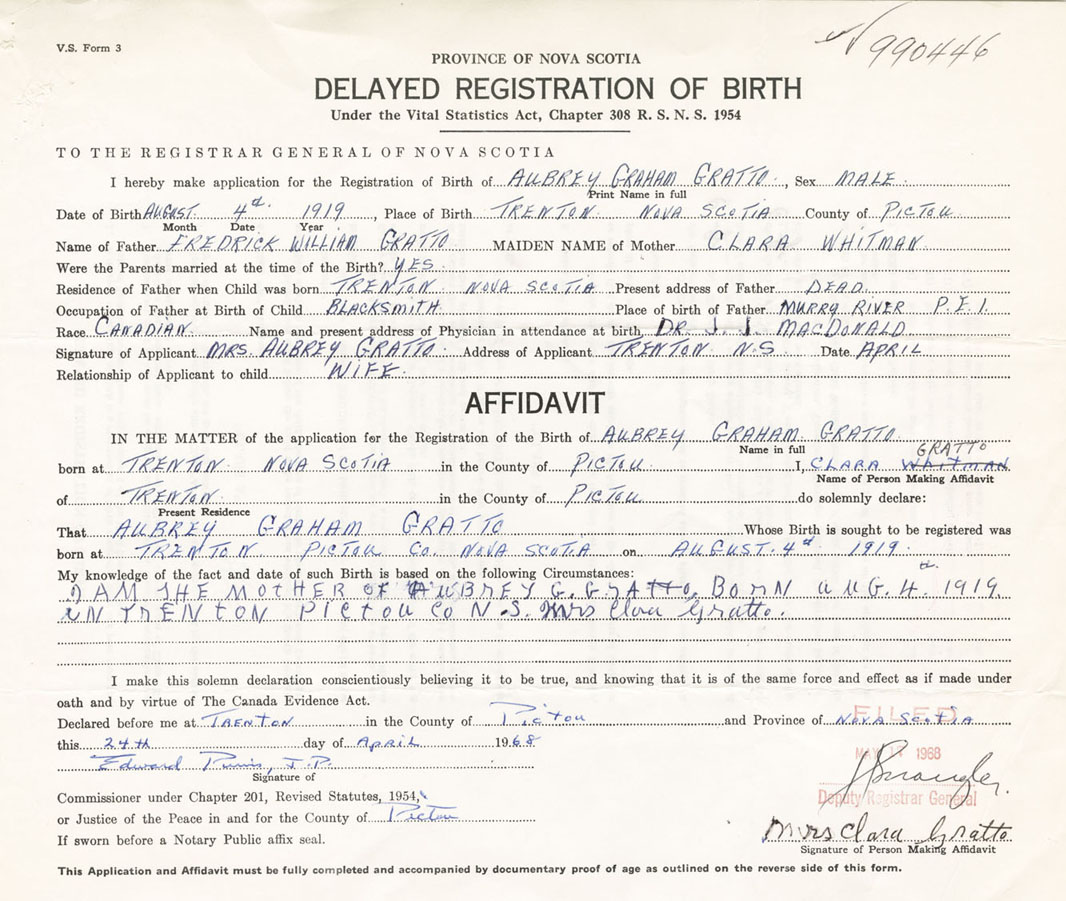 V.S. Form 3
№ 990446
PROVINCE OF NOVA SCOTIA
DELAYED REGISTRATION OF BIRTH
Under the Vital Statistics Act, Chapter 308 R. S. N. S. 1954
TO THE REGISTRAR GENERAL OF NOVA SCOTIA
I hereby make application for the Registration of Birth of AUBREY GRAHAM GRATTO, Sex MALE
Print Name in full
Date of Birth AUGUST 4th 1919, Place of Birth TRENTON NOVA SCOTIA County of PICTOU
Month Date Year
Name of Father FREDRICK WILLIAM GRATTO MAIDEN NAME of Mother CLARA WHITMAN
Were the Parents married at the time of the Birth? YES
Residence of Father when Child was born TRENTON NOVA SCOTIA Present address of Father DEAD
Occupation of Father at Birth of Child BLACKSMITH Place of birth of Father MURRY RIVER P.E.I.
Race CANADIAN Name and present address of Physician in attendance at birth DR. J. J. MACDONALD
Signature of Applicant MRS. AUBREY GRATTO Address of Applicant TRENTON N.S. Date APRIL
Relationship of Applicant to child WIFE
AFFIDAVIT
IN THE MATTER of the application for the Registration of the Birth of AUBREY GRAHAM GRATTO
Name in full GRATTO
born at TRENTON NOVA SCOTIA in the County of PICTOU I, CLARA WHITMAN
Name of Person Making Affidavit
of TRENTON in the County of PICTOU do solemnly declare:
Present Residence
That AUBREY GRAHAM GRATTO Whose Birth is sought to be registered was
born at TRENTON PICTOU CO. NOVA SCOTIA on AUGUST 4th 1919.
My knowledge of the fact and date of such Birth is based on the following Circumstances:
I AM THE MOTHER OF AUBREY G. GRATTO BORN AUG. 4th. 1919
IN TRENTON PICTOU CO N.S. Mrs Clara Gratto.
I make this solemn declaration conscientiously believing it to be true, and knowing that it is of the same force and effect as if made under
oath and by virtue of The Canada Evidence Act.
Declared before me at TRENTON in the County of Pictou and Province of NOVA SCOTIA
FILED
this 24th day of April 1968
MAY 1968
Edward J.P.
Signature of
Deputy Registrar General
Commissioner under Chapter 201, Revised Statutes, 1954,
or Justice of the Peace in and for the County of Pictou
Mrs Clara Gratto
If sworn before a Notary Public affix seal.
Signature of Person Making Affidavit
This Application and Affidavit must be fully completed and accompanied by documentary proof of age as outlined on the reverse side of this form.